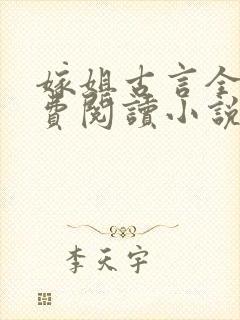 嫁姐古言全
費閱讀小說
李天宇